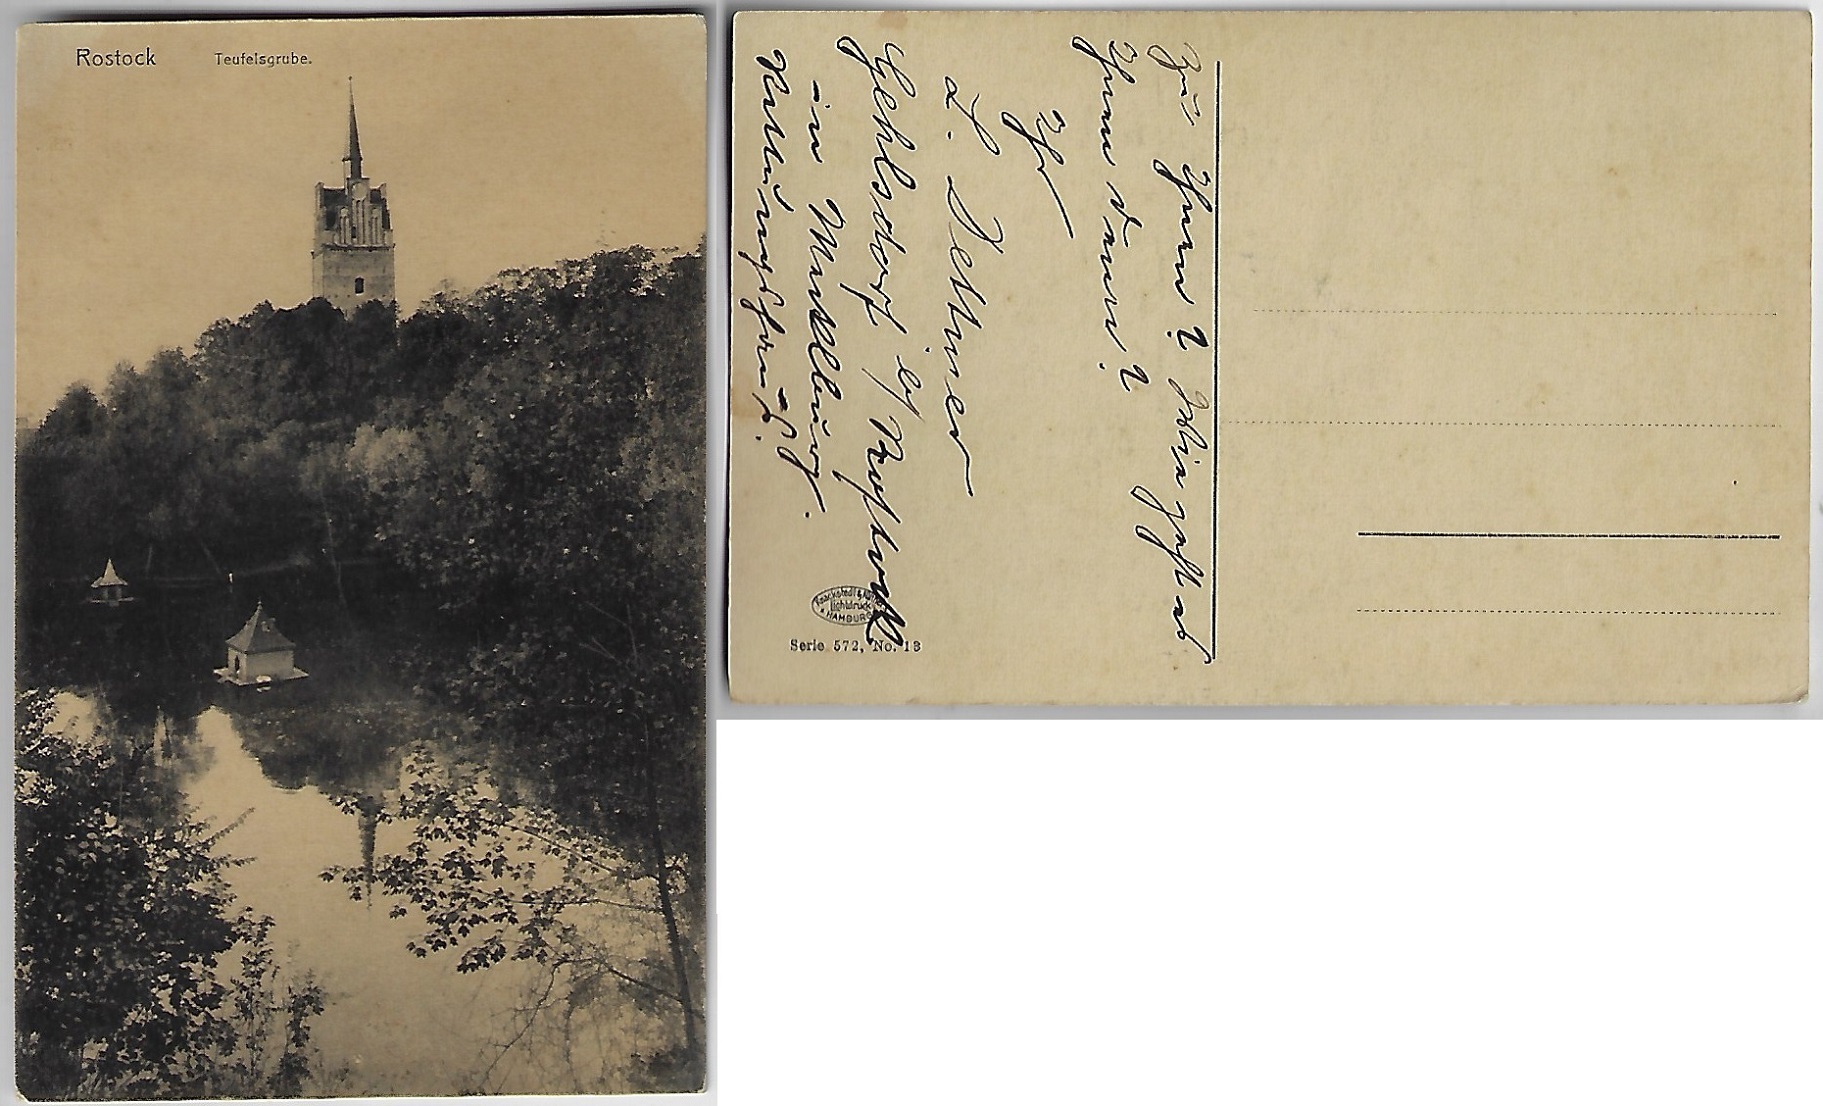 Rostock Teufelsgrube.
zu Ihnen? Wie geht es
Ihnen
Ihr
L.
Gehlsdorf b/ Rostock
in Mecklenburg.
Knackstedt & Näther
Lichtdruck
HAMBURG
Serie 572, No. 13